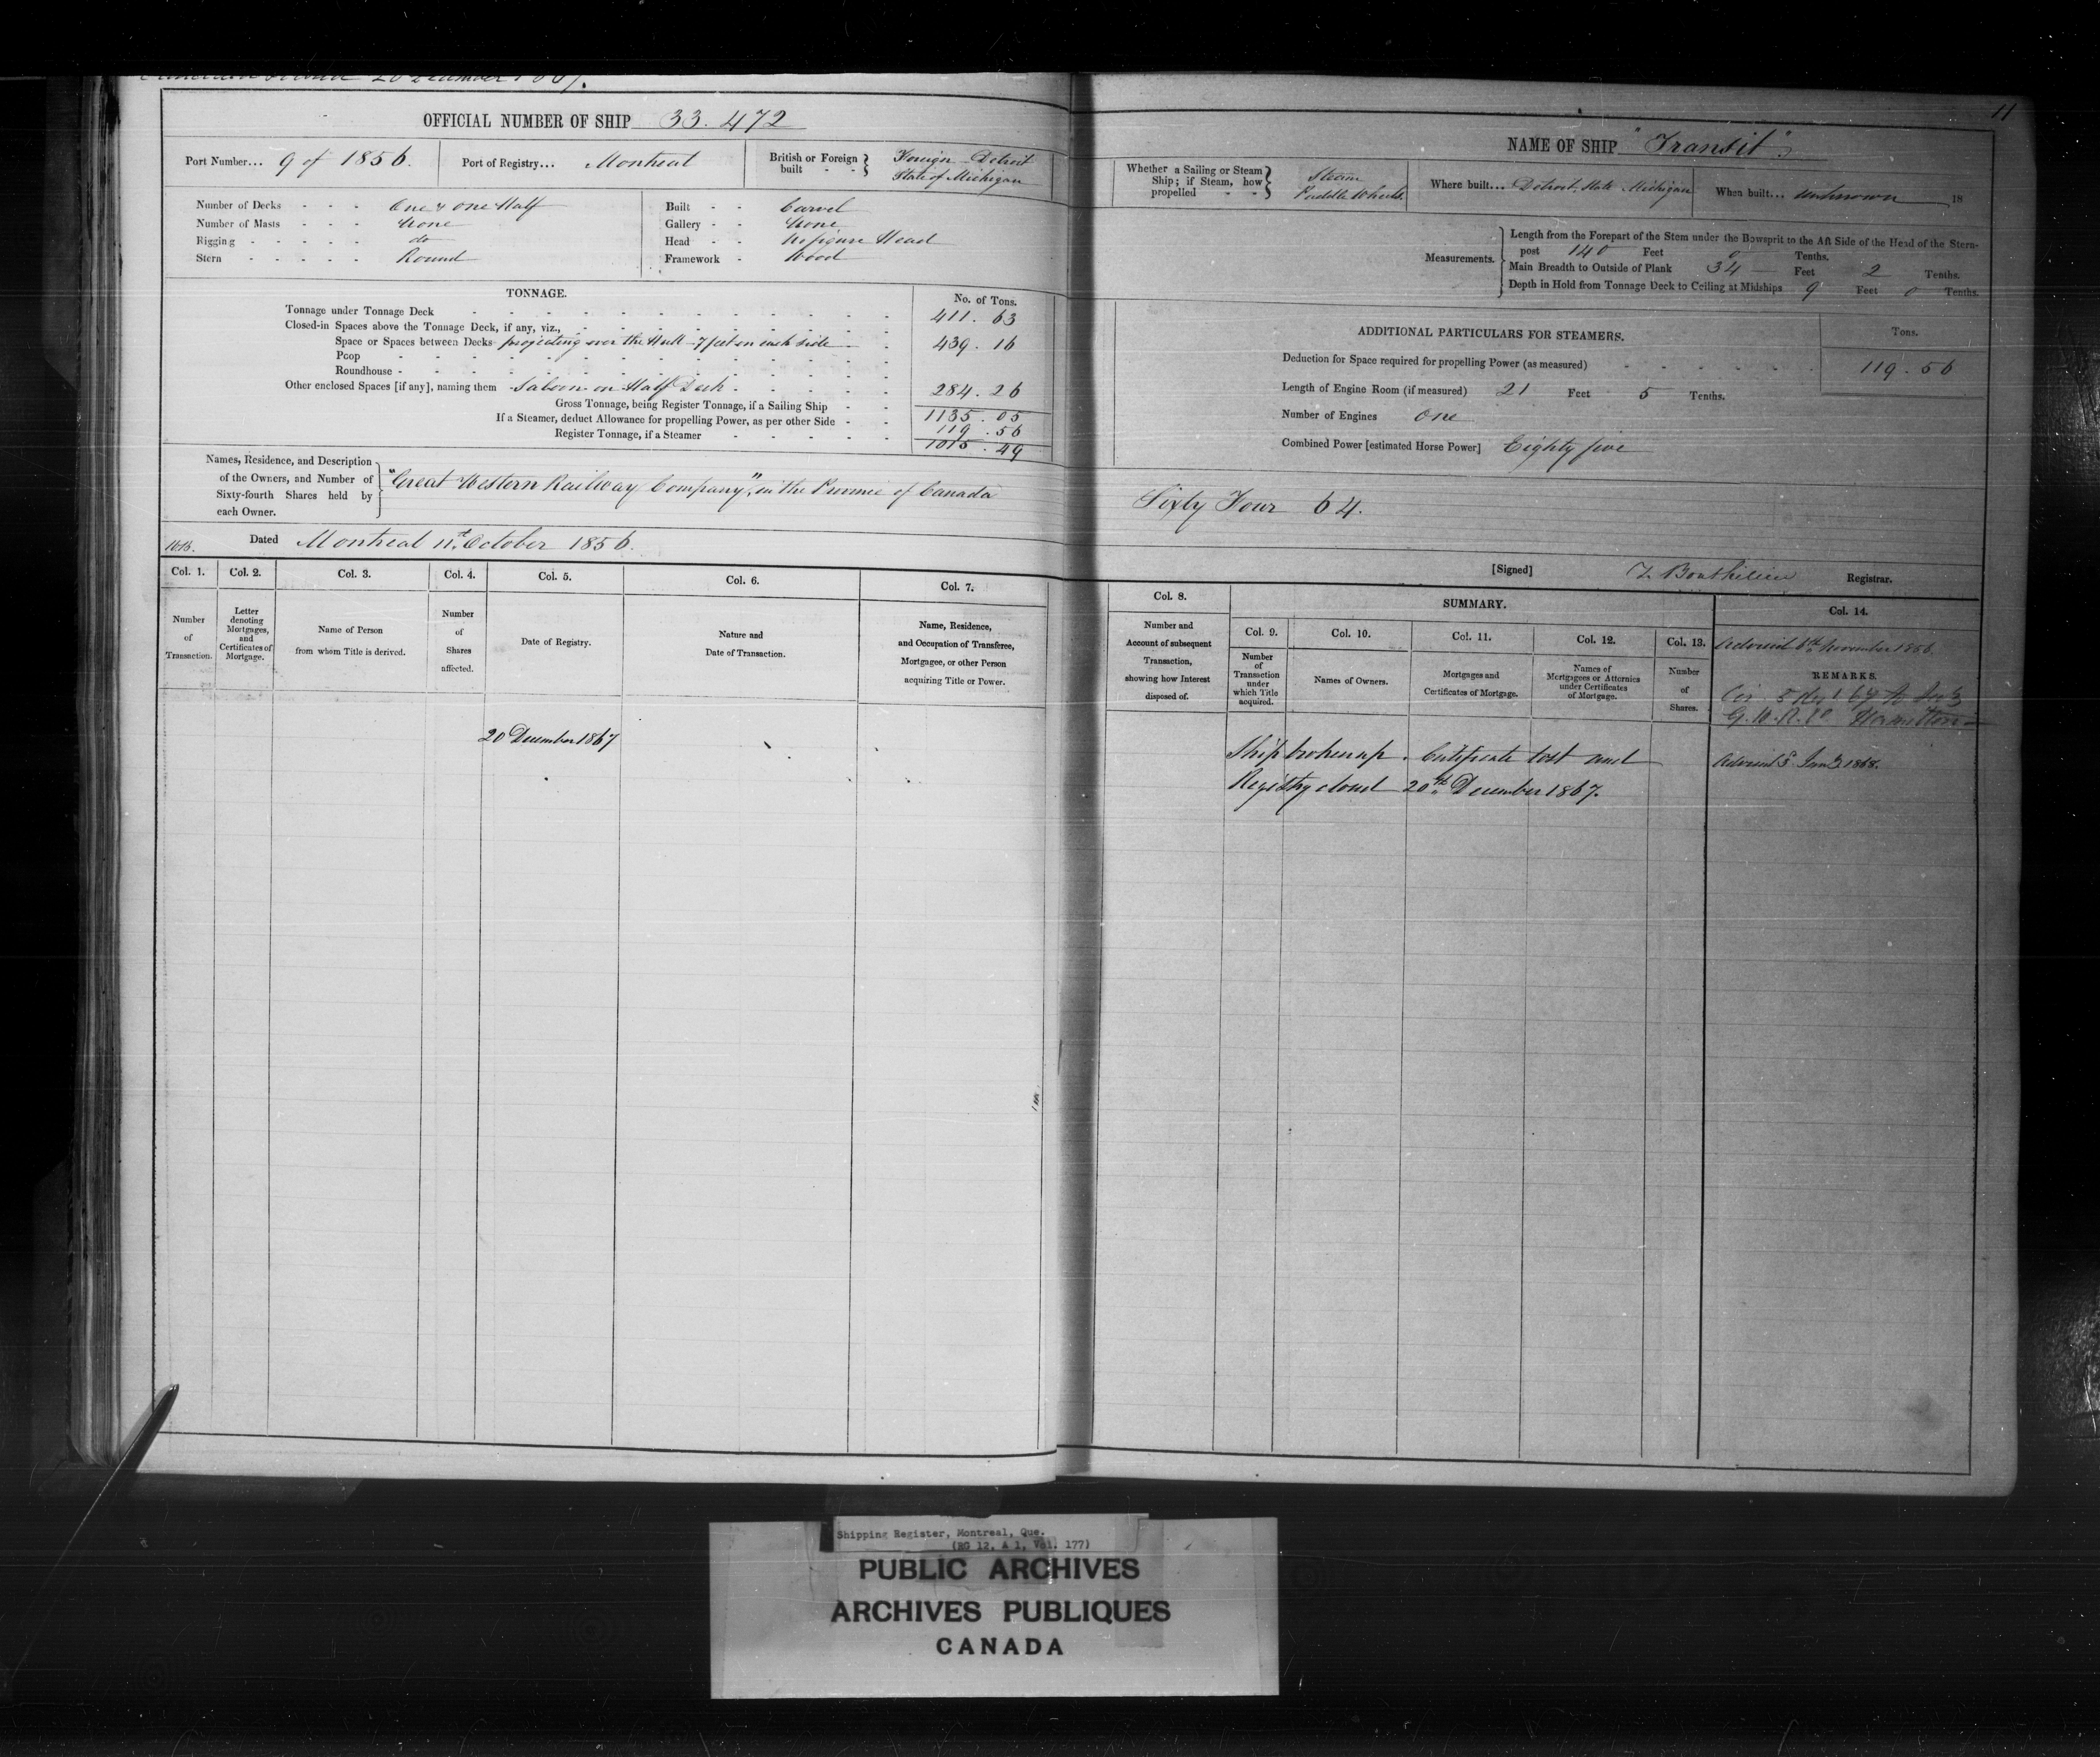 20 December 1867.
OFFICIAL NUMBER OF SHIP 33.472
Port Number... 9 of 1856. Port of Registry... Montreal British or Foreign built - - Foreign Detroit State of Michigan
Number of Decks - - - One & One Half Built - - Carvel
Number of Masts - - - None Gallery - - None
Rigging - - - - - do Head - - No figure Head
Stern - - - - - Round Framework - Wood
TONNAGE. No. of Tons.
Tonnage under Tonnage Deck 411.63
Closed-in Spaces above the Tonnage Deck, if any, viz.,
Space or Spaces between Decks projecting over the Hull 7 feet on each side 439.16
Poop
Roundhouse
Other enclosed Spaces [if any], naming them Saloon on Half Deck 284.26
Gross Tonnage, being Register Tonnage, if a Sailing Ship 1135.05
If a Steamer, deduct Allowance for propelling Power, as per other Side 119.56
Register Tonnage, if a Steamer 1015.49
Names, Residence, and Description
of the Owners, and Number of
Sixty-fourth Shares held by
each Owner.
"Great Western Railway Company", in the Province of Canada
1016. Dated Montreal 11th October 1856.
Col. 1. Col. 2. Col. 3. Col. 4. Col. 5. Col. 6. Col. 7.
Number of Transaction.
Letter denoting Mortgages, and Certificates of Mortgage.
Name of Person from whom Title is derived.
Number of Shares affected.
Date of Registry.
Nature and Date of Transaction.
Name, Residence, and Occupation of Transferee, Mortgagee, or other Person acquiring Title or Power.
20 December 1867
11
NAME OF SHIP "Transit"
Whether a Sailing or Steam Ship; if Steam, how propelled - - Steam Paddle Wheels. Where built... Detroit State Michigan When built... unknown 18
Measurements.
Length from the Forepart of the Stem under the Bowsprit to the Aft Side of the Head of the Stern-
post 140 Feet 0 Tenths.
Main Breadth to Outside of Plank 34 Feet 2 Tenths.
Depth in Hold from Tonnage Deck to Ceiling at Midships 9 Feet 0 Tenths.
ADDITIONAL PARTICULARS FOR STEAMERS. Tons.
Deduction for Space required for propelling Power (as measured) 119.56
Length of Engine Room (if measured) 21 Feet 5 Tenths.
Number of Engines One
Combined Power [estimated Horse Power] Eighty five
Sixty Four 64.
[Signed] Registrar.
Col. 8. SUMMARY. Col. 14.
Col. 9. Col. 10. Col. 11. Col. 12. Col. 13.
Number and Account of subsequent Transaction, showing how Interest disposed of.
Number of Transaction under which Title acquired.
Names of Owners.
Mortgages and Certificates of Mortgage.
Names of Mortgagees or Attornies under Certificates of Mortgage.
Number of Shares.
Advised 6th November 1856.
REMARKS.
G.W.R. Co Hamilton
Ship broken up. Certificate lost and
Registry closed 20th December 1867.
Advised 8 Jany 1868.
Shipping Register, Montreal, Que.
(RG 12, A 1, Vol. 177)
PUBLIC ARCHIVES
ARCHIVES PUBLIQUES
CANADA